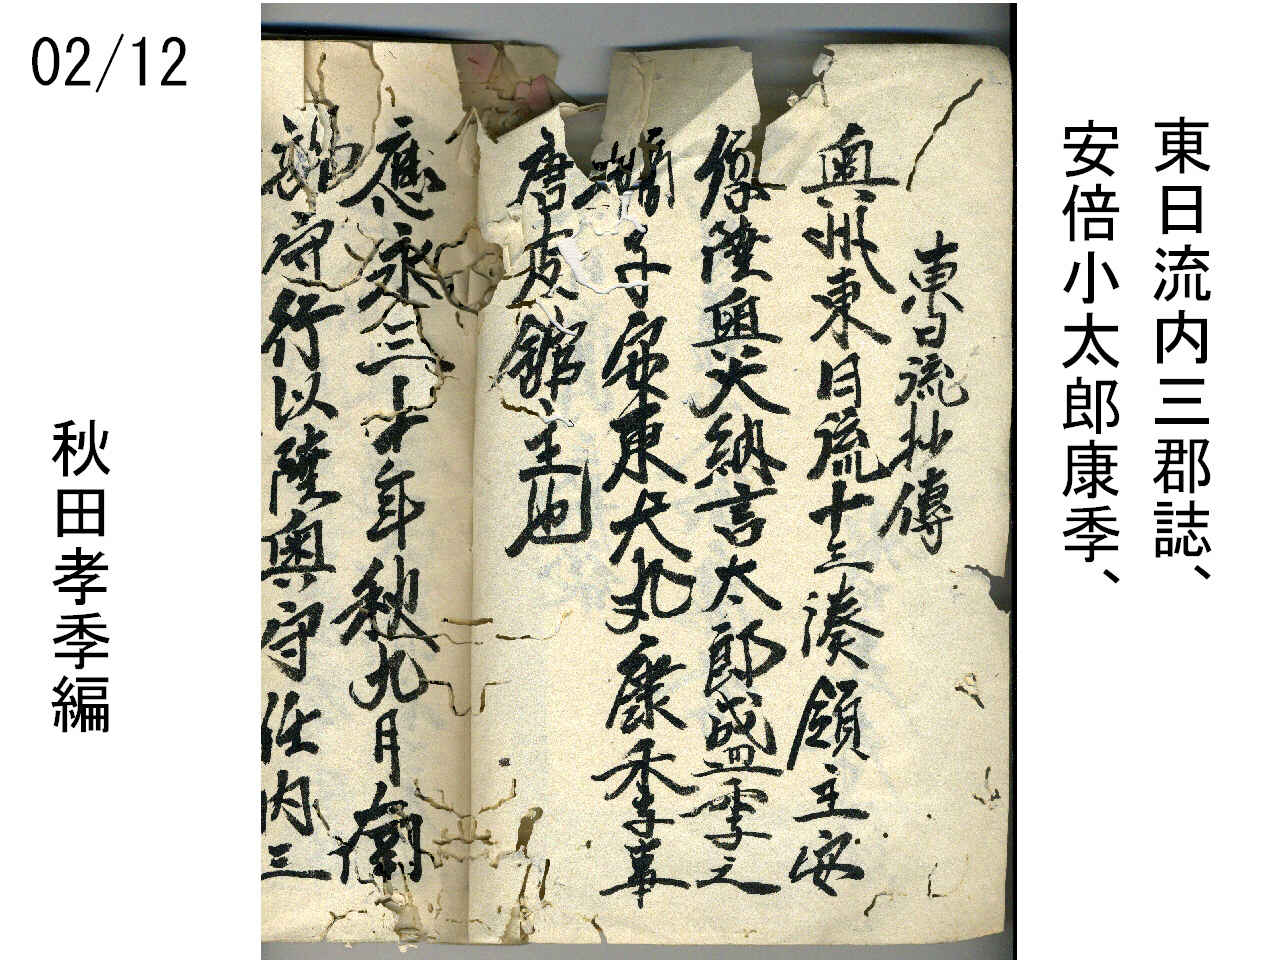 02/12
東日流内三郡誌、
安倍小太郎康季、
東日流抄傳
奥州東日流十三湊領主安
倍陸奥大納言太郎盛季之
嫡子安東太郎丸康季事
唐皮館主也
應永三十年秋九月衛
守行以陸奥守任内三
秋田孝季編